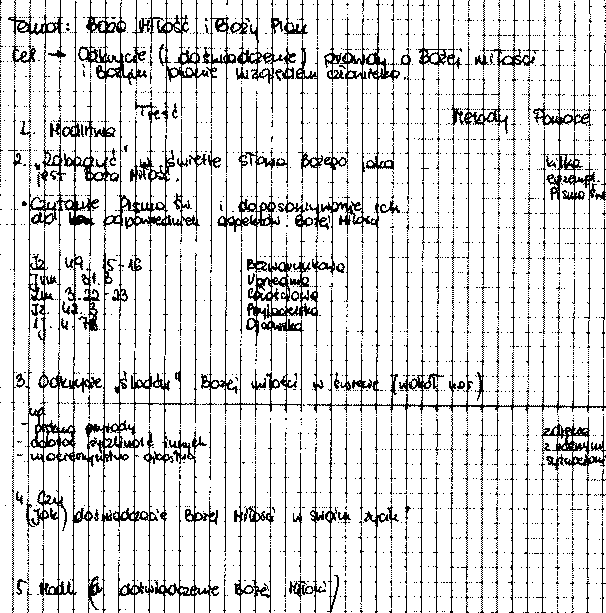 Temat: Boża Miłość i Boży Plan
Cel → Odkrycie (i doświadczenie) prawdy o Bożej miłości
i Bożym planie względem człowieka.
Treść Metody Pomoce
1. Modlitwa
2. „Zobaczyć" w świetle słowa Bożego jaka
jest Boża Miłość.
kilka
egzempl.
Pisma Św
• Czytanie Pisma Św. i dopasowywanie ich
do odpowiednich aspektów Bożej Miłości
Iz 49, 15-16 Bezwarunkowa
31.3 Uprzednia
3.22-23
Iz. 43. Przyjacielska
4. Ojcowska
3. Odkrycie „śladów" Bożej miłości w świecie (wokół nas)
np
- piękno przyrody
- dobroć życzliwość innych
- macierzyństwo - ojcostwo
zdjęcia
z różnymi
sytuacjami
4. Czy
(Jak) doświadczacie Bożej Miłości w swoim życiu?
5. Modl. (o doświadczenie Bożej Miłości)